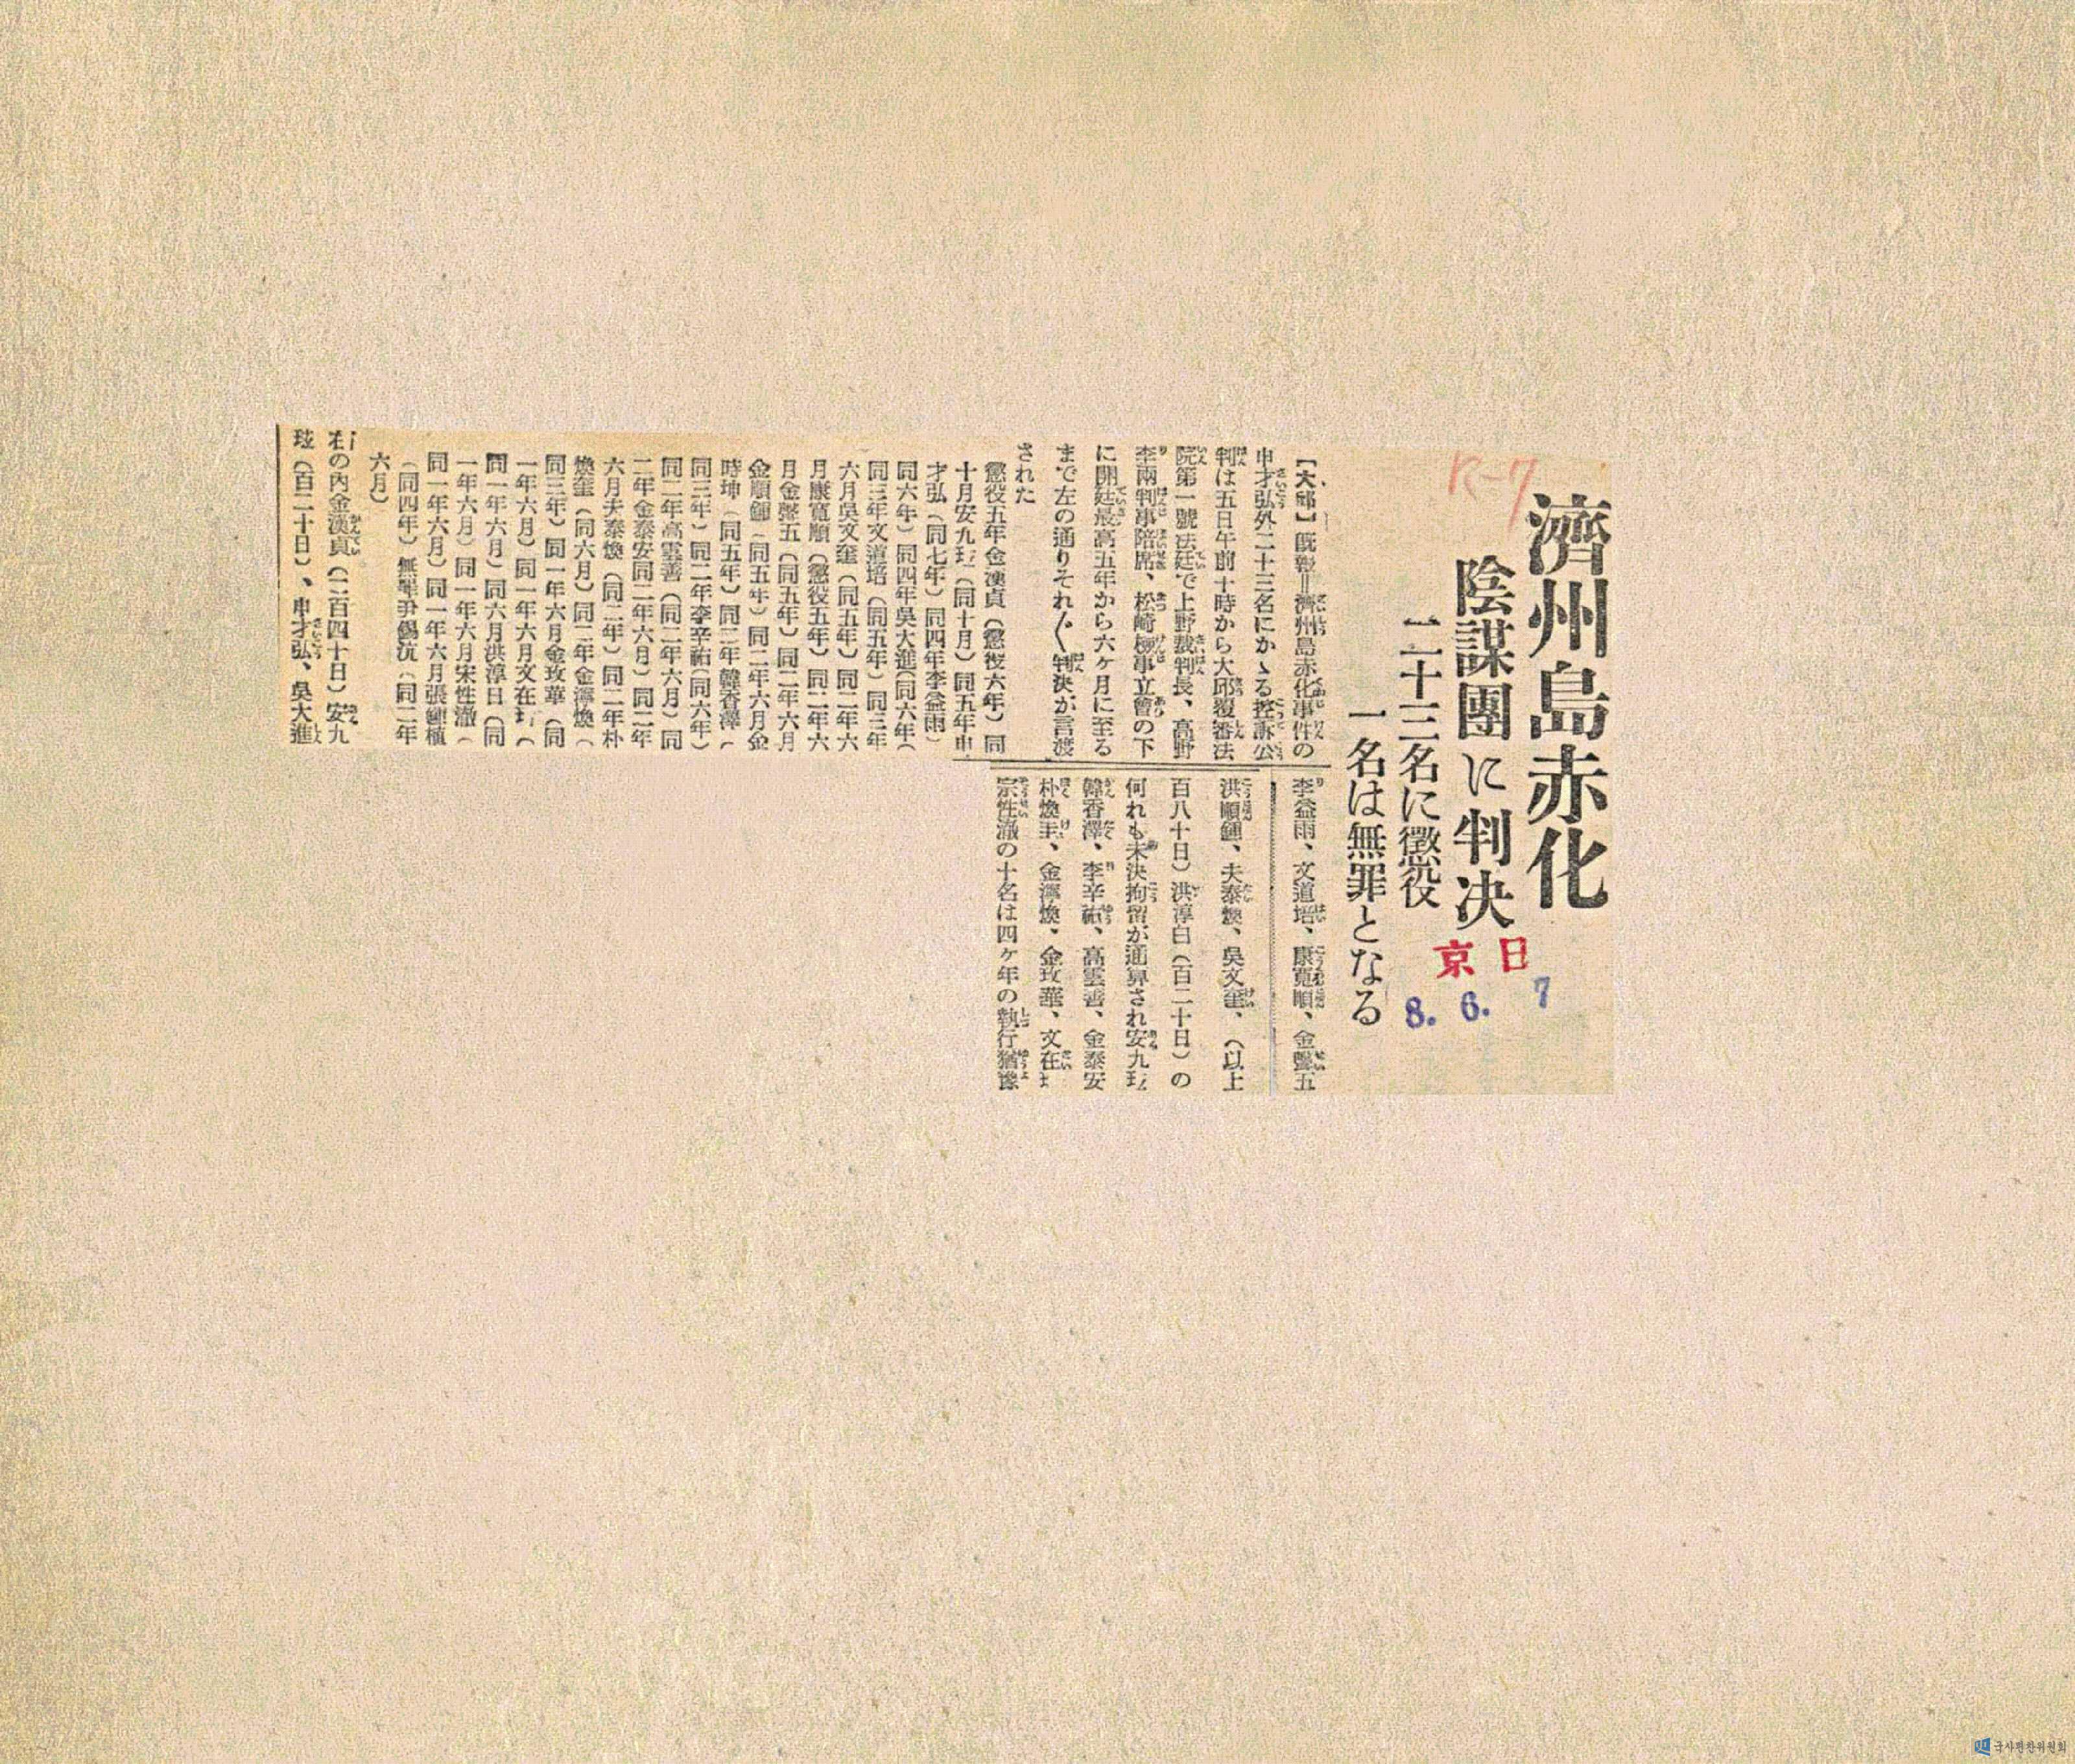 濟州島赤化
陰謀團に判決
二十三名に懲役
一名は無罪となる
R-7
京日
8. 6. 7
【大邱】既報＝濟州島赤化事件の
申才弘外二十三名にかゝる控訴公
判は五日午前十時から大邱覆審法
院第一號法廷で上野裁判長、高野
李兩判事陪席、松崎檢事立會の下
に開廷最高五年から六ヶ月に至る
まで左の通りそれ〳〵判決が言渡
された
懲役五年金漢貞（懲役六年）同
十月安九玹（同十月）同五年申
才弘（同七年）同四年李益雨（
同六年）同四年吳大進（同六年（
同三年文道培（同五年）同三年
六月吳文奎（同五年）同二年六
月康寬順（懲役五年）同二年六
月金聲五（同五年）同二年六月
金順鍾（同五年）同二年六月金
時坤（同五年）同二年韓香澤（
同三年）同二年李辛祐（同六年）
同二年高雲善（同二年六月）同
二年金泰安同二年六月）同二年
六月夫泰煥（同二年）同二年朴
煥奎（同六月）同二年金澤煥（
同三年）同一年六月金玫華（同
一年六月）同一年六月文在玹（
同一年六月）同六月洪淳日（同
一年六月）同一年六月宋性澈（
同一年六月）同一年六月張鍾植
（同四年）無罪尹錫沆（同二年
六月）
右の內金漢貞（二百四十日）安九
玹（百二十日）、申才弘、吳大進
李益雨、文道培、康寬順、金聲五
洪順鍾、夫泰煥、吳文奎、（以上
百八十日）洪淳日（百二十日）の
何れも未決拘留が通算され安九玹
韓香澤、李辛祐、高雲善、金泰安
朴煥圭、金澤煥、金玫華、文在玹
宗性澈の十名は四ヶ年の執行猶豫
국사편찬위원회